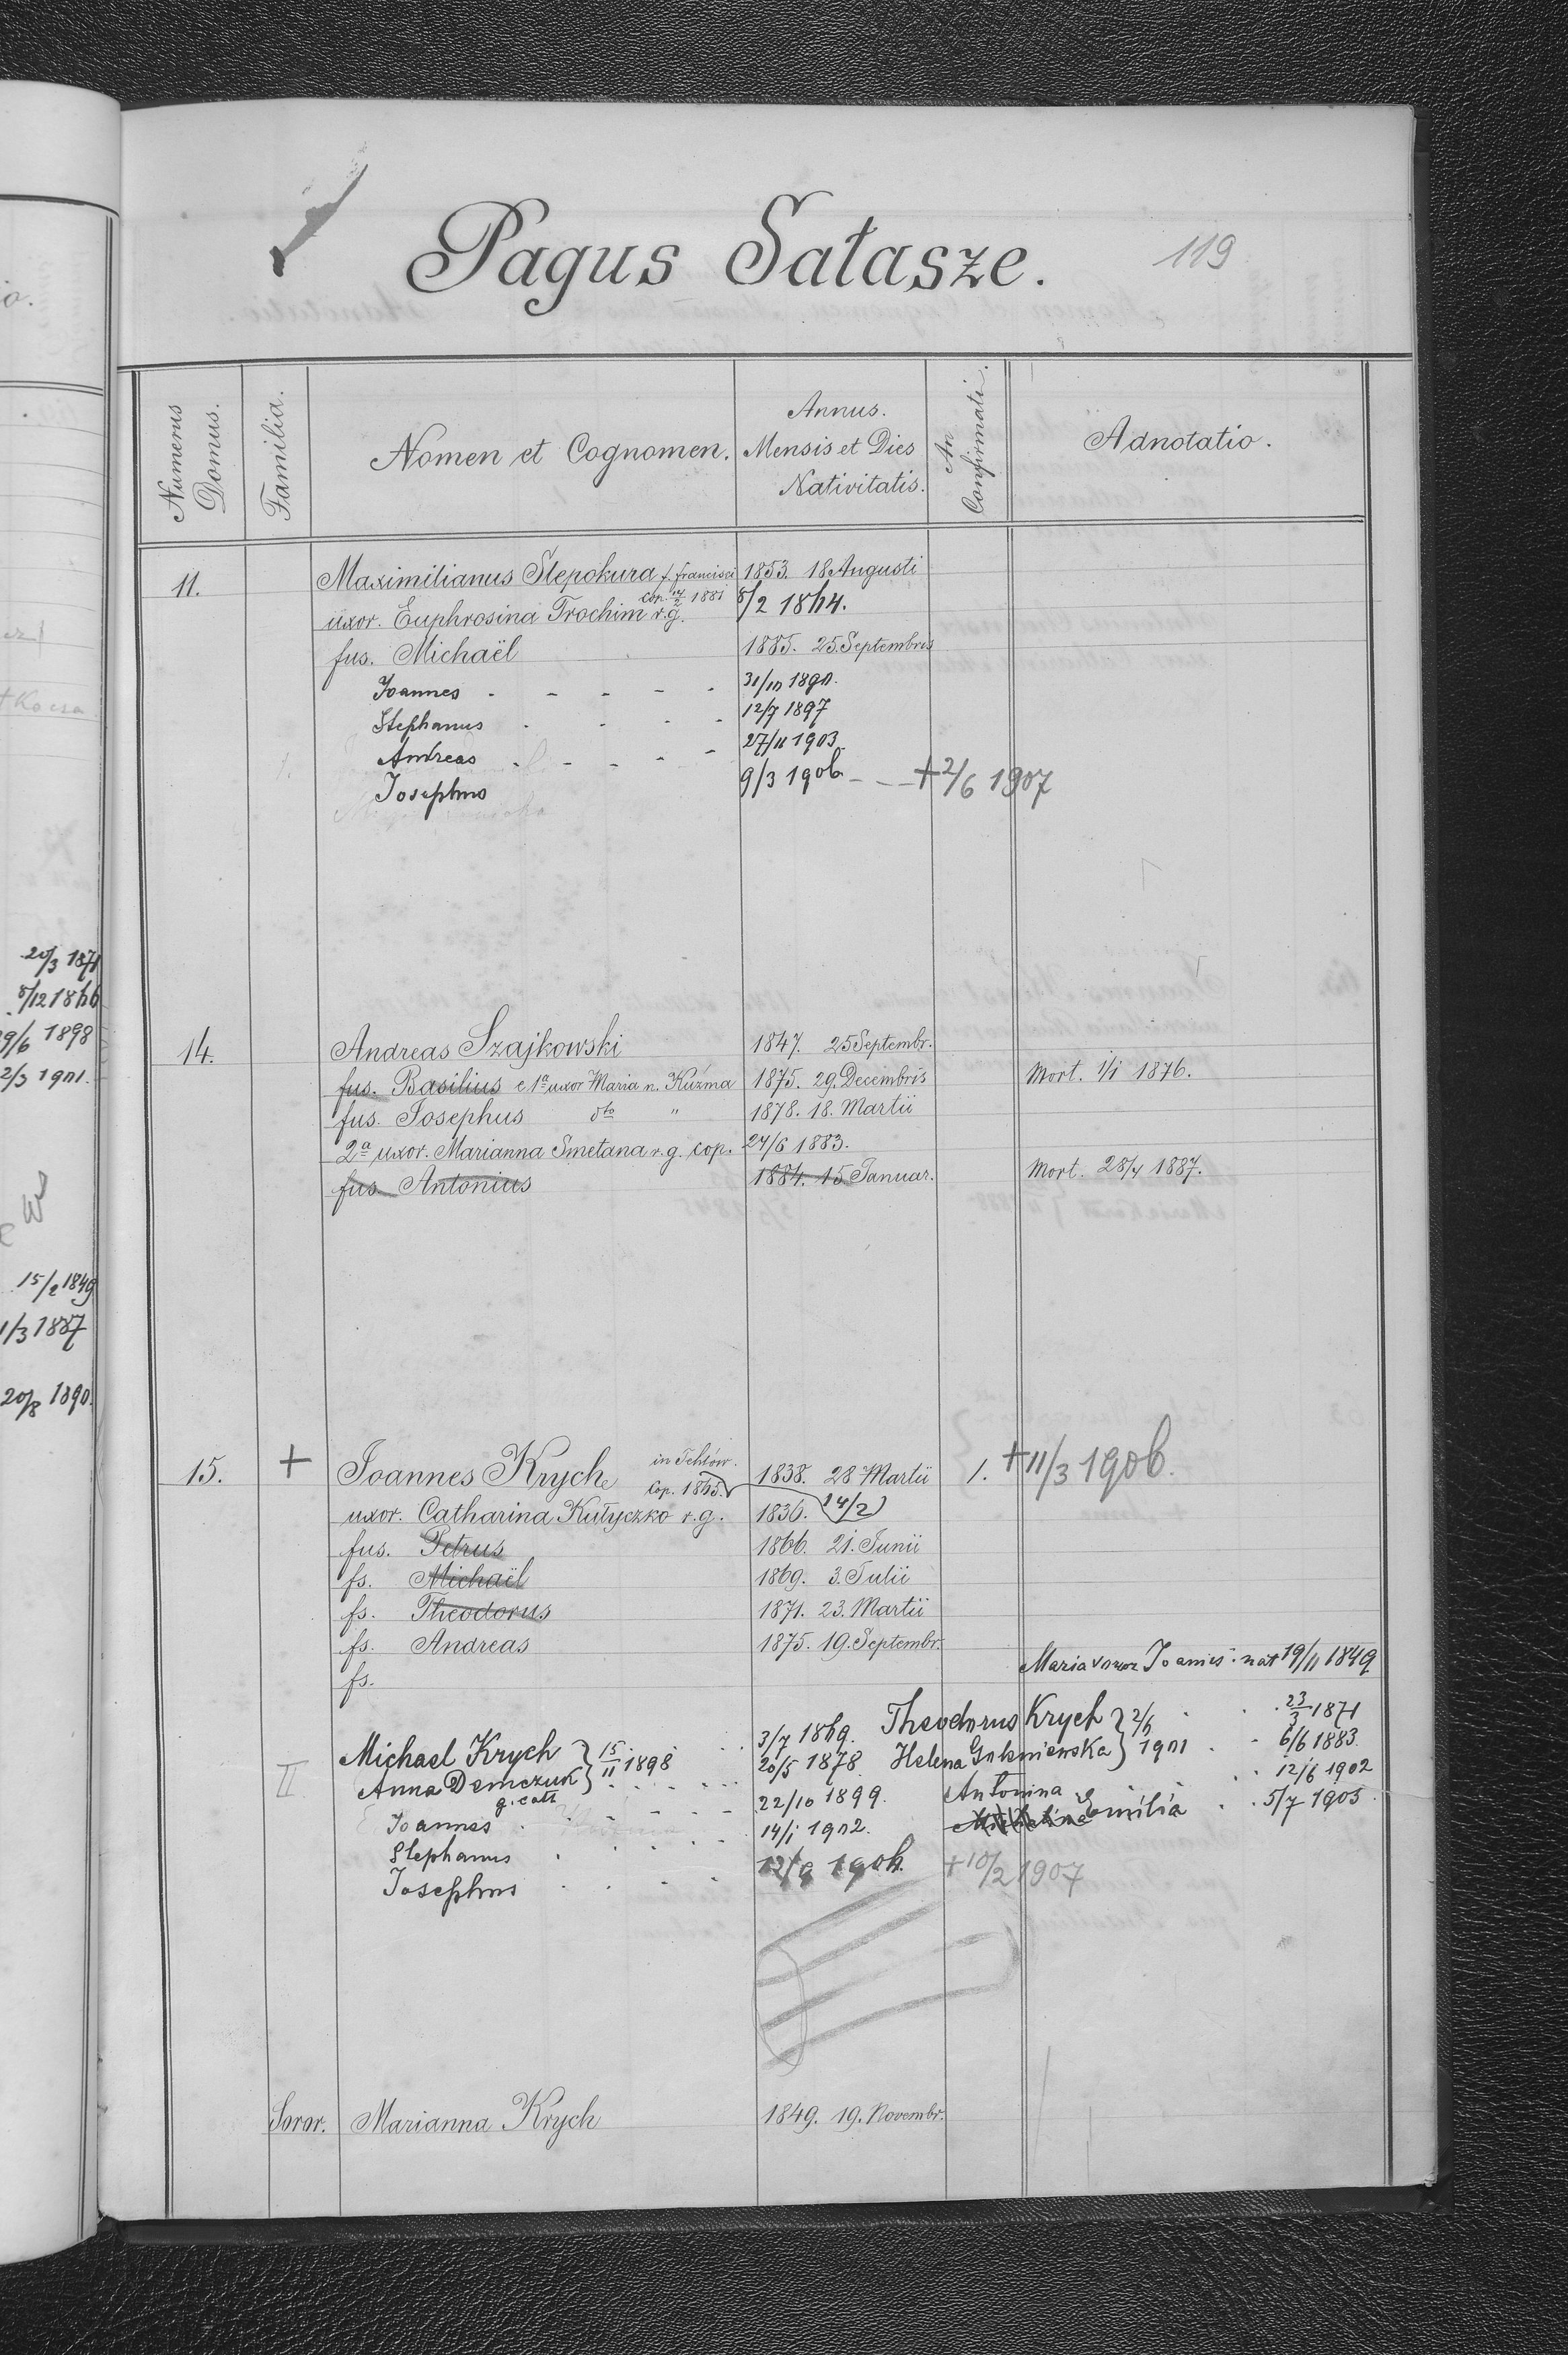 Pagus Sałasze.
119
Numerus Domus.
Familia.
Nomen et Cognomen.
Annus.
Mensis et Dies
Nativitatis.
An Confirmati.
Adnotatio.
11. Maximilianus Slepokura f. Francisci 1853. 18 Augusti
cop. 14/2 1881
uxor. Euphrosina Trochim r.g. 8/2 1864.
fus. Michaël 1885. 25. Septembris
Joannes 31/10 1890.
Stephanus 12/7 1897
Andreas 27/11 1903.
Josephus 9/3 1906 + 2/6 1907
14. Andreas Szajkowski 1847. 25 Septembr.
fus. Basilius e 1a uxor Maria n. Kuźma 1875. 29. Decembris Mort. 1/1 1876.
fus. Josephus dto " 1878. 18. Martii
2a uxor. Marianna Smetana r.g. cop. 24/6 1883.
fus. Antonius 1884. 15. Januar. Mort. 28/4 1887.
15. + Joannes Krych in Tehlów. 1838. 28 Martii 1. + 11/3 1906.
Cop. 1865.
uxor. Catharina Kułyczko r.g. 1836. 14/2
fus. Petrus 1866. 21. Junii
fs. Michaël 1869. 3. Julii
fs. Theodorus 1871. 23. Martii
fs. Andreas 1875. 19. Septembr.
fs. Maria uxor Joannis nat 19/11 1849
II Michael Krych } 15/11 1898 3/7 1869. Theodorus Krych } 2/6 23/3 1871
Anna Demczuk } 20/5 1878. Helena } 1901 6/6 1883.
g. cath
Joannes 22/10 1899. Antonina 12/6 1902
Stephanus 14/1 1902. Emilia 5/7 1905.
Josephus 12/9 1906. + 10/2 1907
Soror. Marianna Krych 1849. 19. Novembr.
20/3 1871
8/12 1866
29/6 1898
2/3 1901.
15/2 1849
1/3 1887
20/8 1890.